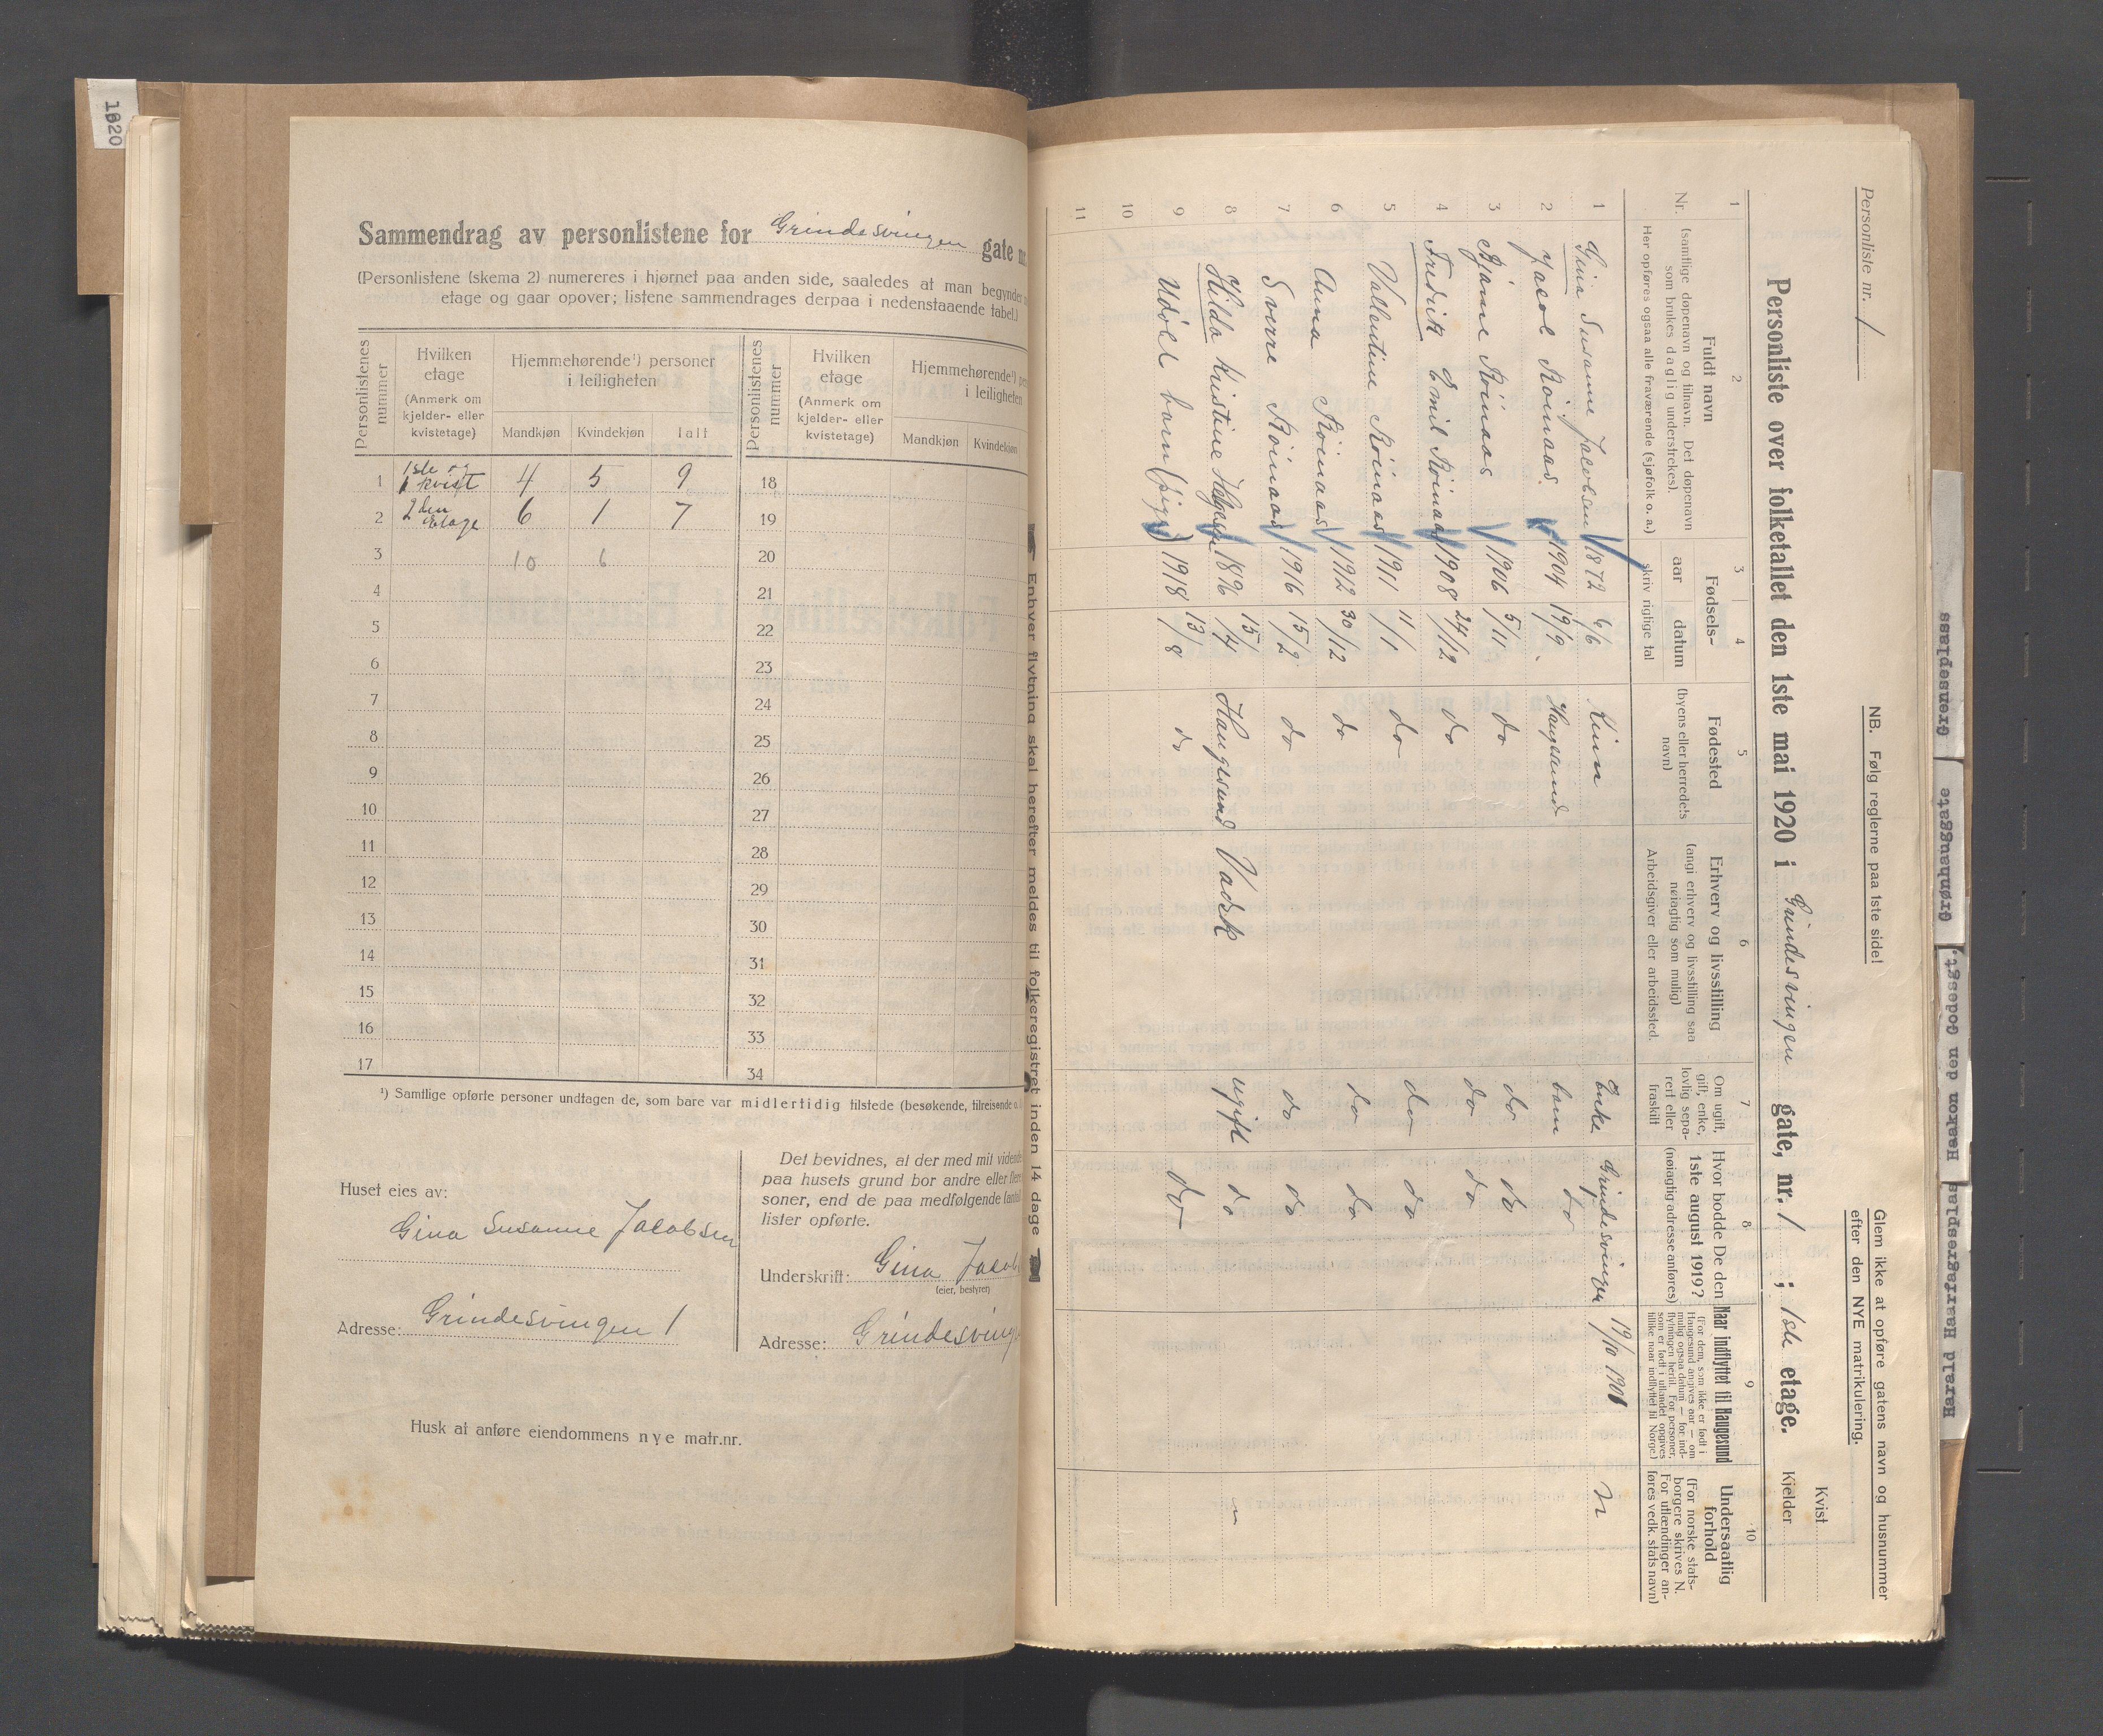 1920
Sammendrag av personlistene for Grindesvingen gate nr.
(Personlistene (skema 2) numereres i hjørnet paa anden side, saaledes at man begynder
etage og gaar opover; listene sammendrages derpaa i nedenstaaende tabel.)
Personlistenes nummer
Hvilken etage (Anmerk om kjelder- eller kvistetage)
Hjemmehørende¹) personer i leiligheten
Mandkjøn Kvindekjøn Ialt
Personlistenes nummer
Hvilken etage (Anmerk om kjelder- eller kvistetage)
Hjemmehørende¹)
i leiligheten
Mandkjøn Kvindekjøn
1 1ste og kvist 4 5 9 18
2 2den Etage 6 1 7 19
3 10 6 20
4 21
5 22
6 23
7 24
8 25
9 26
10 27
11 28
12 29
13 30
14 31
15 32
16 33
17 34
¹) Samtlige opførte personer undtagen de, som bare var midlertidig tilstede (besøkende, tilreisende o.
Huset eies av:
Gina Susanne Jacobsen
Adresse: Grindesvingen 1
Det bevidnes, at der med mit vidende
paa husets grund bor andre eller flere
soner, end de paa medfølgende
lister opførte.
Underskrift: Gina
(eier, bestyrer)
Adresse:
Husk at anføre eiendommens nye matr.nr.
Enhver flytning skal herefter meldes til folkeregistret inden 14 dage
Personliste nr. 1
NB. Følg reglerne paa 1ste side!
Glem ikke at opføre gatens navn og husnummer
efter den NYE matrikulering.
Personliste over folketallet den 1ste mai 1920 i Grindesvingen gate, nr. 1 ; 1ste etage.
Kvist
Kjelder
1 2 3 4 5 6 7 8 9 10
Nr.
Fuldt navn
(samtlige døpenavn og tilnavn. Det døpenavn
som brukes daglig understrekes).
Her opføres ogsaa alle fraværende (sjøfolk o. a.)
Fødsels-
aar datum
skriv rigtige tal
Fødested
(byens eller herredets
navn)
Erhverv og livsstilling
(angi erhverv og livsstilling saa
nøiagtig som mulig)
Arbeidsgiver eller arbeidssted.
Om ugift,
gift, enke,
lovlig sepa-
rert eller
fraskilt
Hvor bodde De den
1ste august 1919?
(nøiagtig adresse anføres)
Naar indflyttet til Haugesund
(For dem, som ikke er født i
Haugesund angives aar — om
mulig ogsaa datum — for ind-
flytningen hertil. For personer,
som er født i utlandet opgives
tillike naar indflyttet til Norge.)
Undersaatlig
forhold
(For norske stats-
borgere skrives N.
For utlændinger an-
føres vedk. stats navn)
1 Gina Susanne Jacobsen 1872 6/6 Kinn Enke Grindesvingen 19/10 1901 n
2 Jacob Röinaas 1904 19/9 Haugesund barn do
3 Bjarne Röinaas 1906 5/11 do do do
4 Fredrik Emil Röinaas 1908 24/12 do do do
5 Vallentine Röinaas 1911 11/1 do do do
6 Anna Röinaas 1912 30/12 do do do
7 Sverre Röinaas 1916 15/2 do do do
8 Hilda Kristine 1896 15/4 Haugesund Vadsk ugift do
9 Udöbt barn (pige) 1918 13/8 do do
10
11
Grensegdlass
Grønhauggate
Haakon den Godesgt.
Harald Haarfagresplas